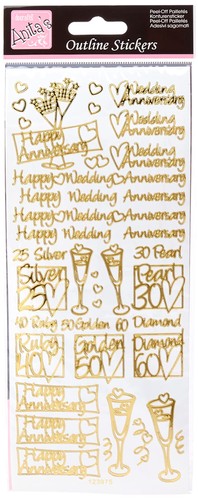 docrafts
Anita's
Outline Stickers
Peel-Off Pailletés
Konturensticker
Peel-Off Pailletés
Adesivi sagomati
Happy Anniversary
Wedding Anniversary
Wedding Anniversary
Wedding Anniversary
Happy Wedding Anniversary
Happy Wedding Anniversary
Happy Wedding Anniversary
Happy Wedding Anniversary
25 Silver
30 Pearl
Silver
25
Pearl
30
40 Ruby 50 Golden 60 Diamond
Ruby
40
Golden
50
Diamond
60
Happy Anniversary
Happy Anniversary
Happy Anniversary